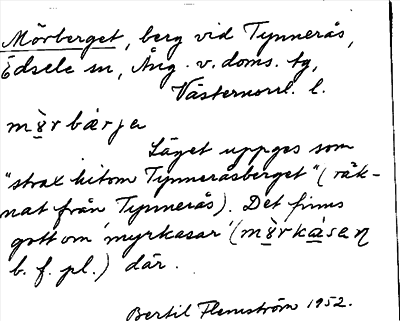 Mörberget, berg vid Tynnerås,
Edsele sn, Ång. v. doms. tg,
Västernorrl. l.
mɤ̀rbærja
Läget uppges som
"strax hitom Tynneråsberget" (räk-
nat från Tynnerås). Det finns
gott om 'myrkasar' (mɤ̀rkàsaɳ
b. f. pl.) där.
Bertil Flemström 1952.